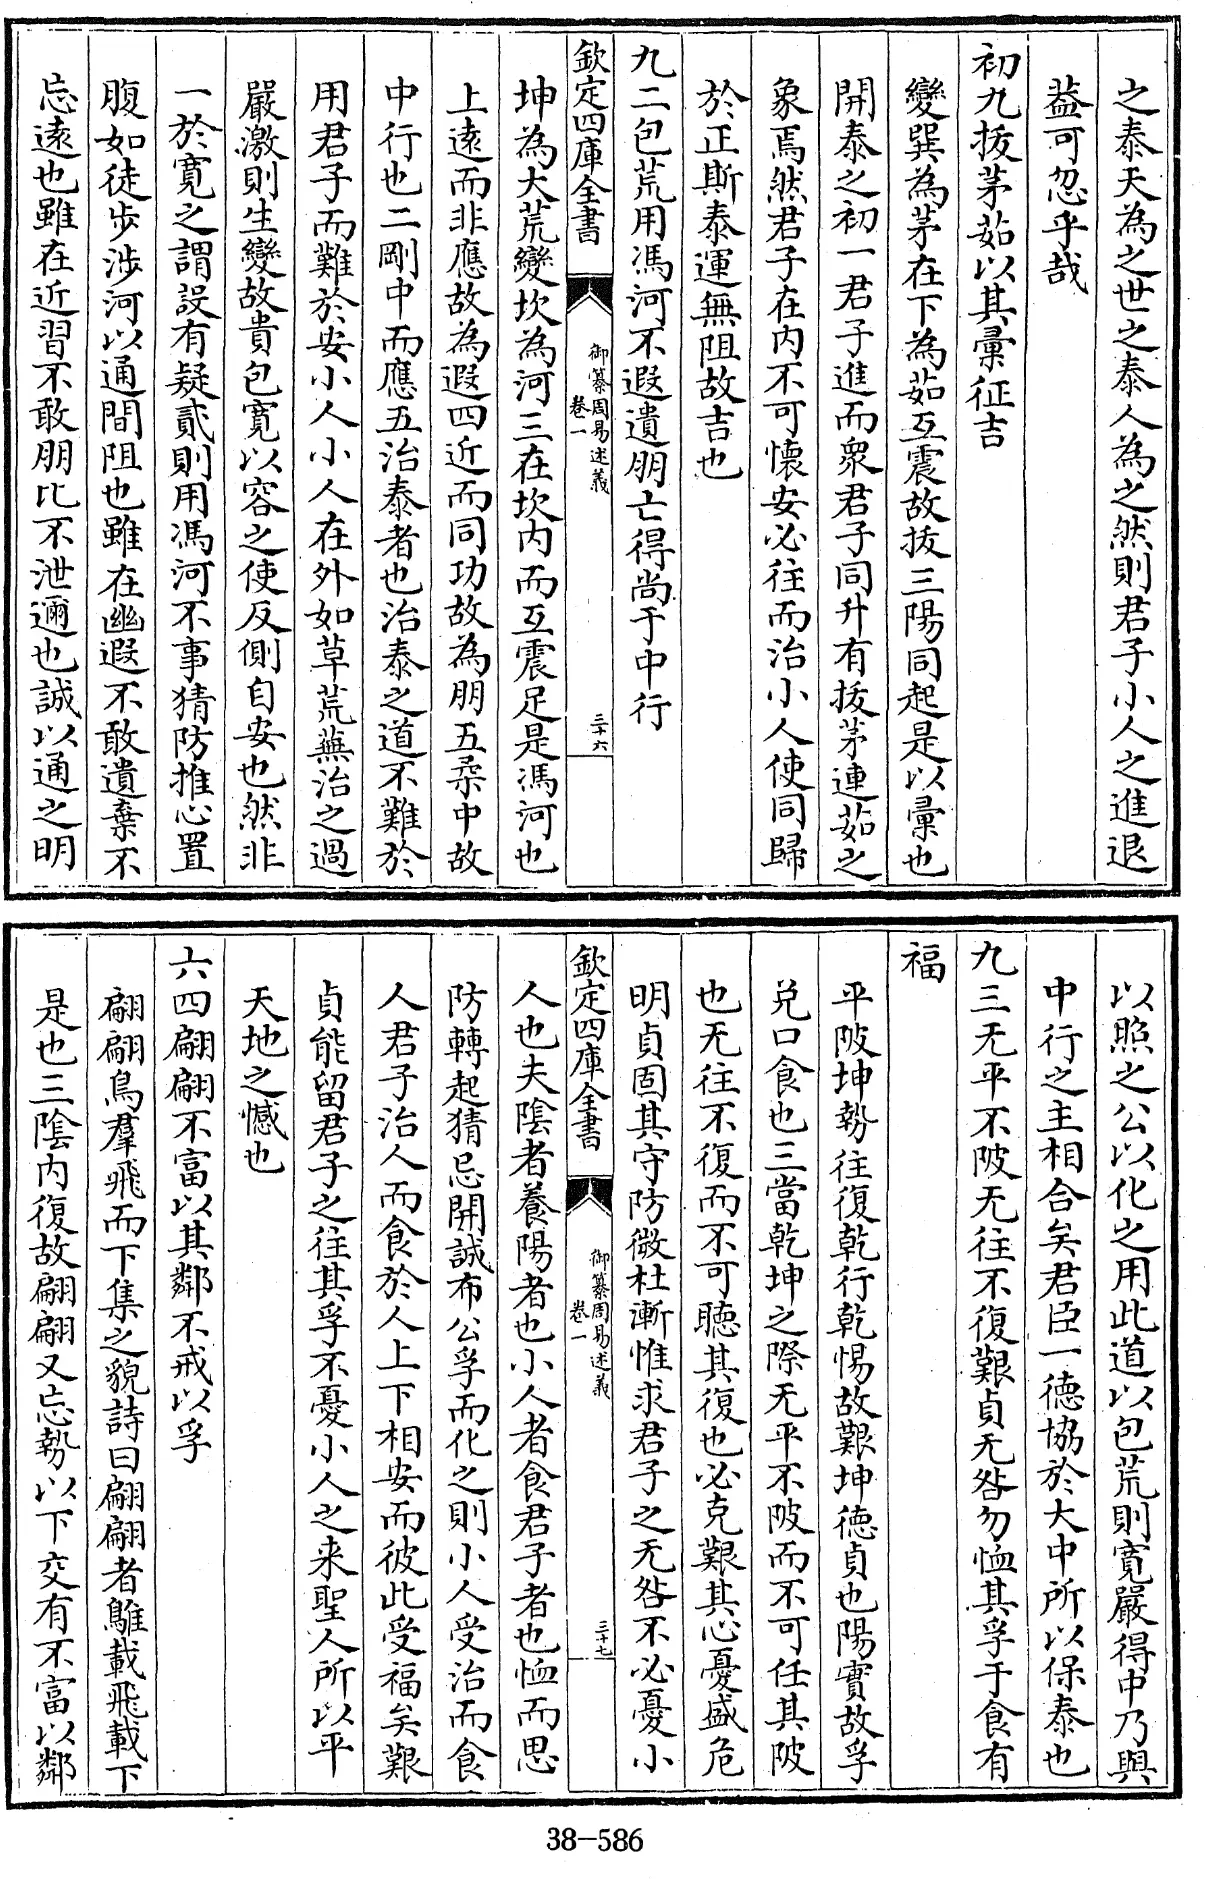 之泰天為之世之泰人為之然則君子小人之進退
葢可忽乎哉
初九拔茅茹以其彚征吉
變巽為茅在下為茹互震故拔三陽同起是以彚也
開泰之初一君子進而衆君子同升有拔茅連茹之
象焉然君子在内不可懷安必往而治小人使同歸
於正斯泰運無阻故吉也
九二包荒用馮河不遐遺朋亡得尚于中行
欽定四庫全書
御纂周易述義
卷一
三十六
坤為大荒變坎為河三在坎内而互震足是馮河也
上遠而非應故為遐四近而同功故為朋五柔中故
中行也二剛中而應五治泰者也治泰之道不難於
用君子而難於安小人小人在外如草荒蕪治之過
嚴激則生變故貴包寛以容之使反側自安也然非
一於寛之謂設有疑貳則用馮河不事猜防推心置
腹如徒步涉河以通間阻也雖在幽遐不敢遺棄不
忘遠也雖在近習不敢朋比不泄邇也誠以通之明
以照之公以化之用此道以包荒則寛嚴得中乃與
中行之主相合矣君臣一德協於大中所以保泰也
九三无平不陂无往不復艱貞无咎勿恤其孚于食有
福
平陂坤勢往復乾行乾惕故艱坤德貞也陽實故孚
兌口食也三當乾坤之際无平不陂而不可任其陂
也无往不復而不可聽其復也必克艱其心憂盛危
明貞固其守防微杜漸惟求君子之无咎不必憂小
欽定四庫全書
御纂周易述義
卷一
三十七
人也夫陰者養陽者也小人者食君子者也恤而思
防轉起猜忌開誠布公孚而化之則小人受治而食
人君子治人而食於人上下相安而彼此受福矣艱
貞能留君子之往其孚不憂小人之来聖人所以平
天地之憾也
六四翩翩不富以其鄰不戒以孚
翩翩鳥羣飛而下集之貌詩曰翩翩者鵻載飛載下
是也三陰内復故翩翩又忘勢以下交有不富以鄰
38-586